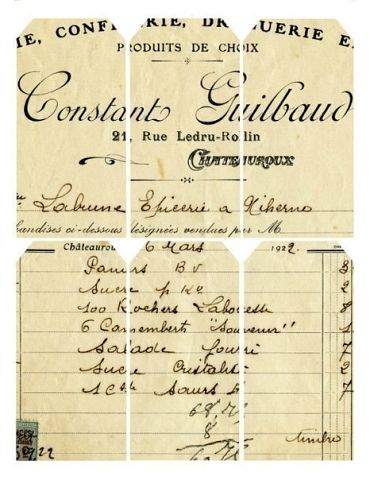 IE, CONFISERIE, DROGUERIE E
PRODUITS DE CHOIX
Constant Guilbaud
21, Rue Ledru-Rollin
CHATEAUROUX
Labrune Epicerie a Niherne
handises ci-dessous désignées vendues par M
Châteaurou 6 Mars 1922.
Paniers B V 3
Sucre p Ko 2
100 Rochers 8
6 Camemberts "Souvenir" 1
Salade 7
Sucre Cristalisé 2
1 Cse 7
68,
8 timbre
22